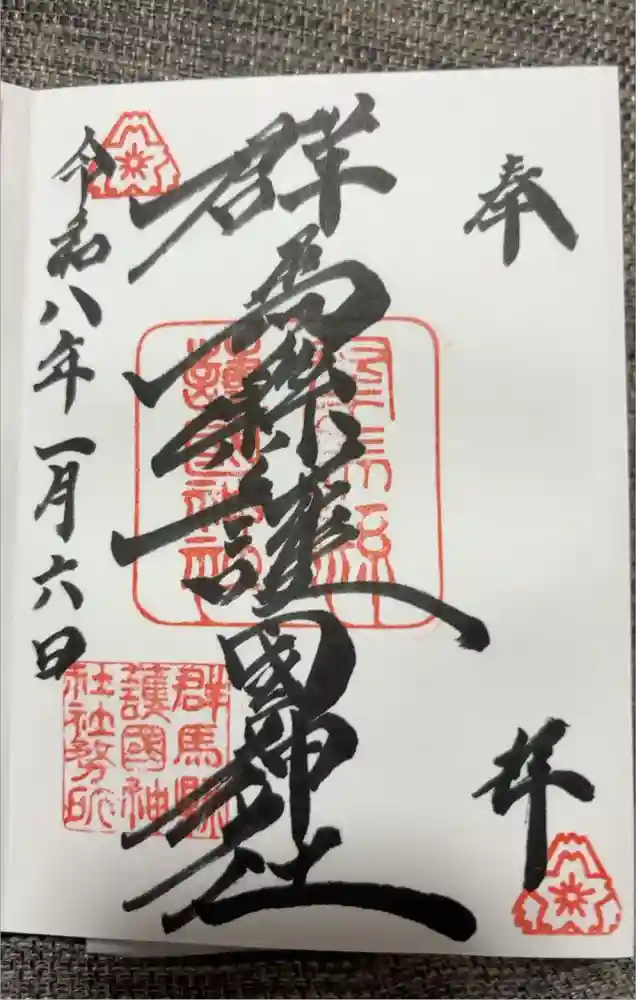 奉拝
群馬縣護國神社
群馬縣
護國神社
令和八年一月六日
群馬縣
護國神
社社務所